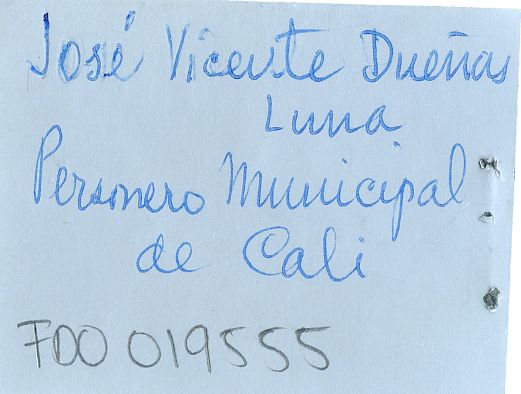 José Vicente Dueñas
Luna
Personero Municipal
de Cali
FDO 019555